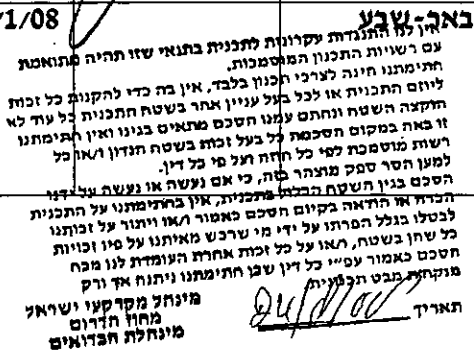 1/08
באר-שבע
אין לנו התנגדות עקרונית לתכנית בתנאי שזו תהיה מתואמת
עם רשויות התכנון המוסמכות.
חתימתנו הינה לצרכי תכנון בלבד, אין בה כדי להקנות כל זכות
ליוזם התכנית או לכל בעל עניין אחר בשטח התכנית כל עוד לא
הוקצה השטח ונחתם עמנו הסכם מתאים בגינו ואין חתימתנו
זו באה במקום הסכמת כל בעל זכות בשטח הנדון ו/או כל
רשות מוסמכת לפי כל חוזה ועל פי כל דין.
למען הסר ספק מוצהר בזה, כי אם נעשה או נעשה על ידנו
הסכם בגין השטח הכלול בתכנית, אין בחתימתנו על התכנית
הכרה או הודאה בקיום הסכם כאמור ו/או ויתור על זכותנו
לבטלו בגלל הפרתו על ידי מי שרכש מאיתנו על פיו זכויות
כל שהן בשטח, ו/או על כל זכות אחרת העומדת לנו מכח
הסכם כאמור עפ"י כל דין שכן חתימתנו ניתנת אך ורק
מנקודת מבט תכנונית
מינהל מקרקעי ישראל
מחוז הדרום
מינהלת הבדואים
תאריך